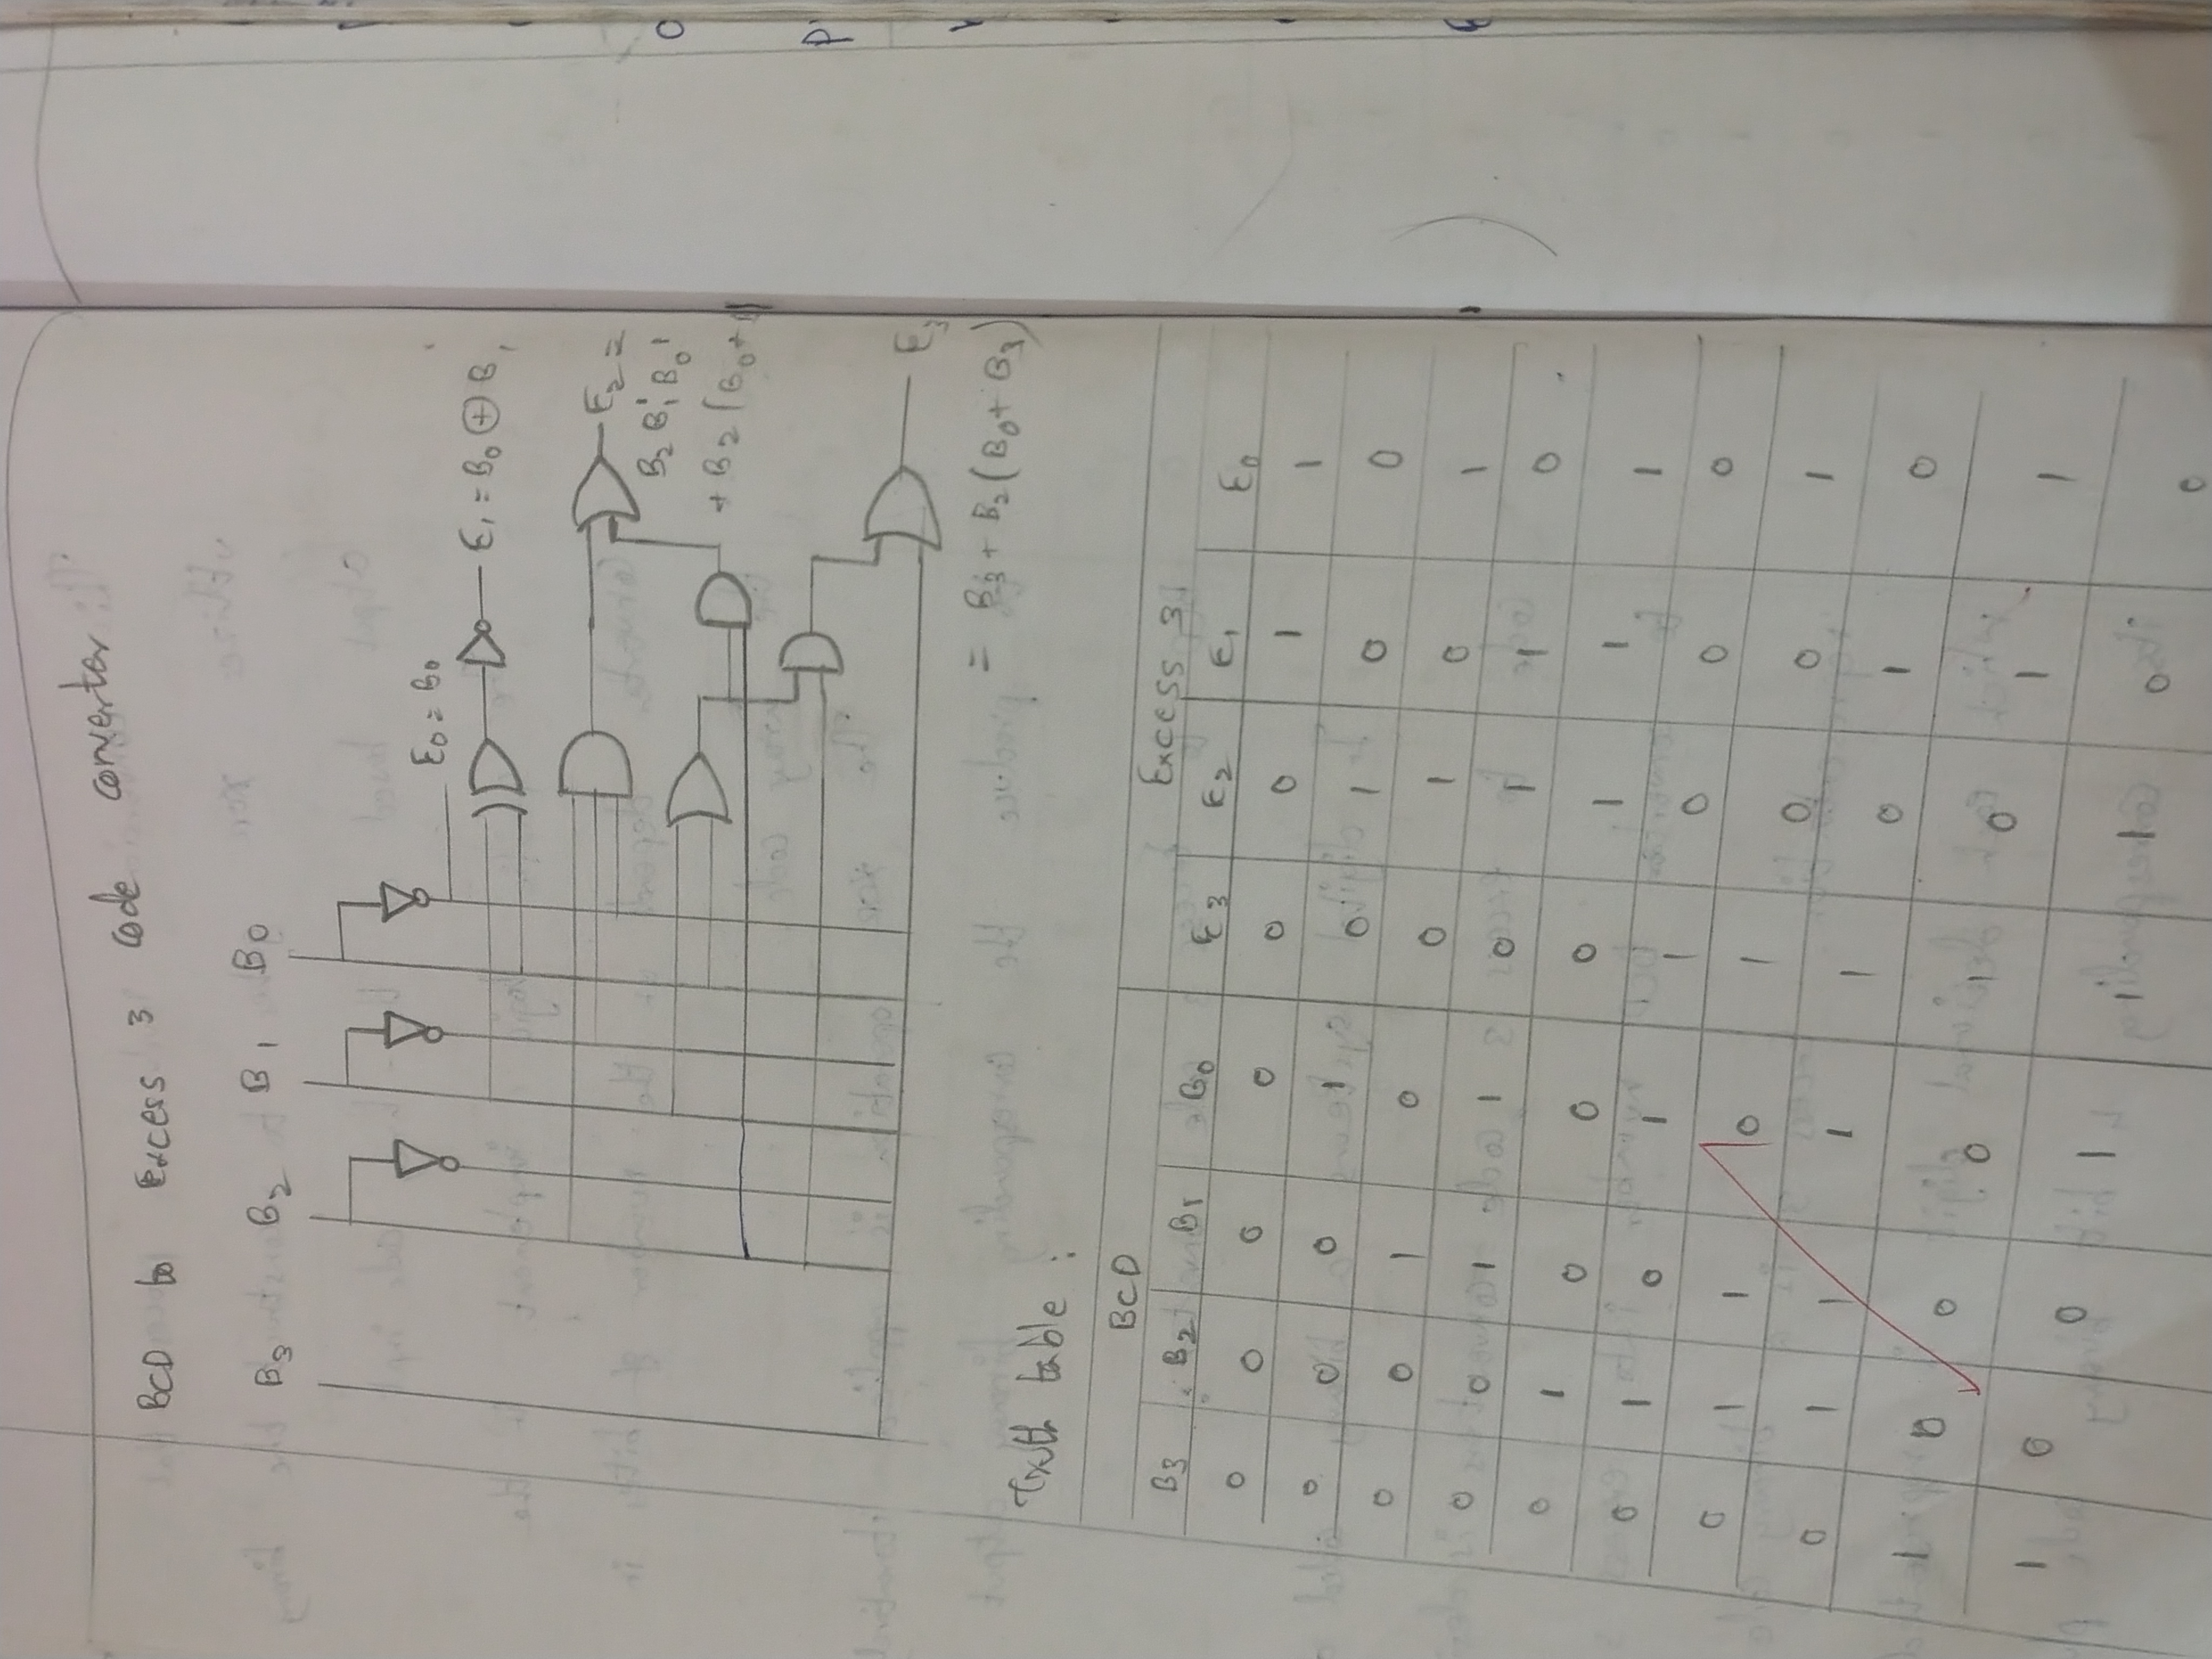 BCD to Excess 3 code converter
B3 B2 B1 B0
E0 = B0
E1 = B0 ⊕ B1
E2 =
B2 B1' B0'
+ B2 (B0 +
E3
= B3 + B2 (B0 + B3)
Truth table :
BCD Excess 3
B3 B2 B1 B0 E3 E2 E1 E0
0 0 0 0 0 0 1 1
0 0 0 1 0 1 0 0
0 0 1 0 0 1 0 1
0 0 1 1 0 1 1 0
0 1 0 0 0 1 1 1
0 1 0 1 1 0 0 0
0 1 1 0 1 0 0 1
0 1 1 1 1 0 1 0
1 0 0 0 1 0 1 1
1 0 0 1 1 1 0 0